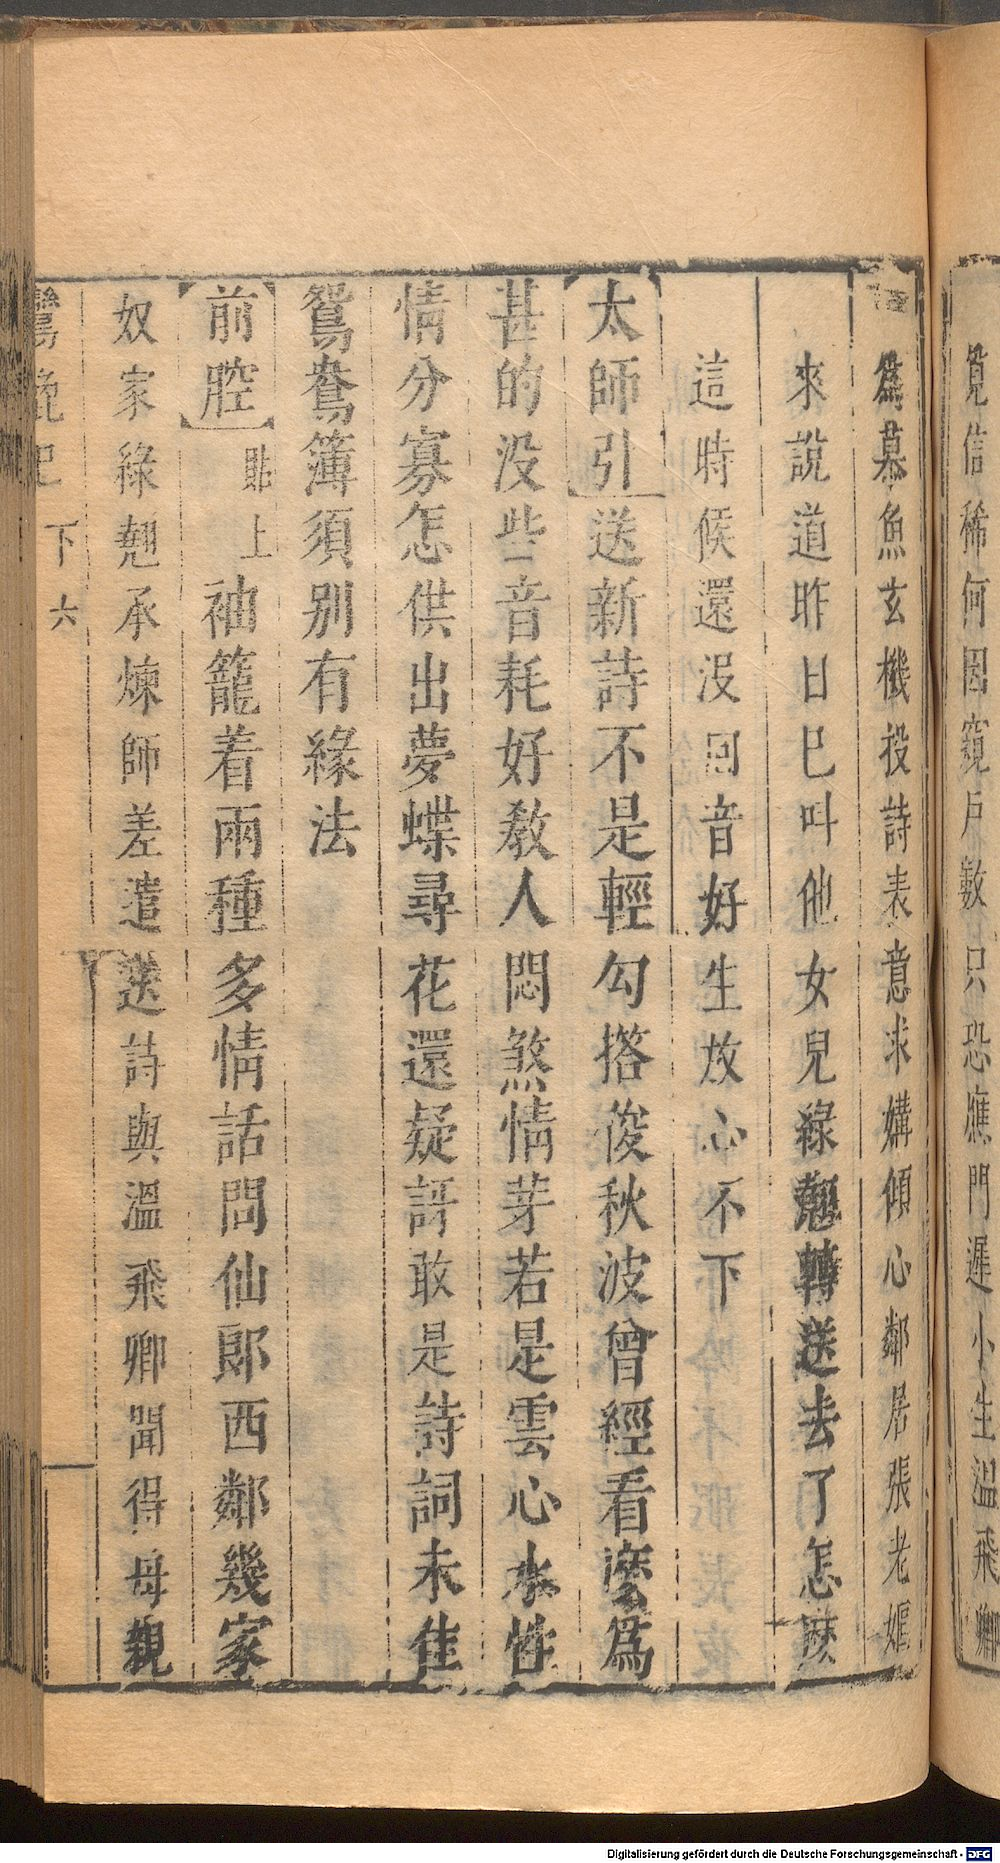 覓信稀何因窺户數只恐應門遲小生溫飛卿
爲慕魚玄機投詩表意求媾傾心鄰居張老嫗
來說道昨日巳叫他女兒綠翹轉送去了怎麼
這時候還没回音好生放心不下
太師引送新詩不是輕勾撘俊秋波曾經看麼爲
甚的没些音耗好教人悶煞情芽若是雲心水性
情分寡怎供出夢蝶尋花還疑訝敢是詩詞未佳
鴛鴦簿須別有緣法
前腔貼上袖籠着兩種多情話問仙郎西鄰幾家
奴家綠翹承煉師差遣送詩與溫飛卿聞得母親
鸞鎞記 下 六
Digitalisierung gefördert durch die Deutsche Forschungsgemeinschaft - DFG